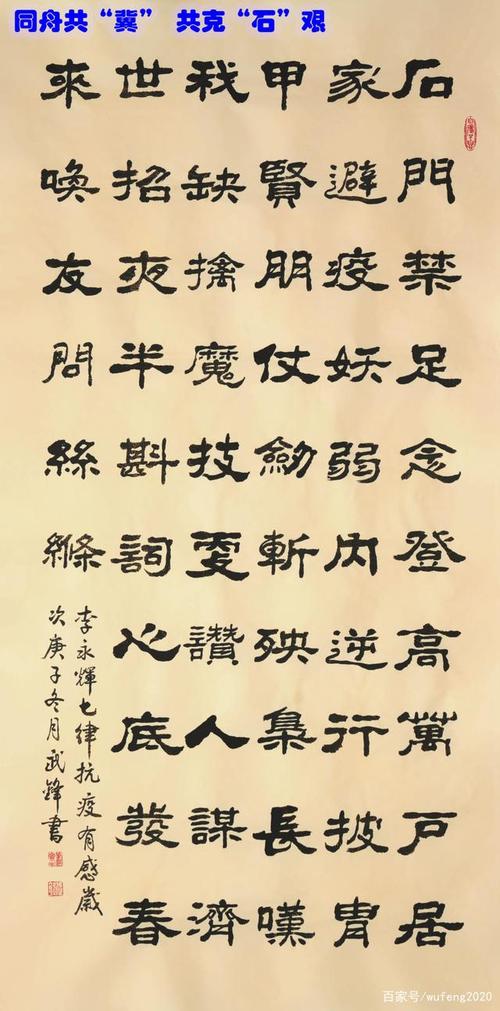 同舟共“冀” 共克“石”艰
石門禁足念登高萬戶居
家避疫妖弱内逆行披胄
甲賢朋仗劍斬殃梟長嘆
我缺擒魔技更讚人謀濟
世招夜半斟詞心底發春
來喚友問絲縧
李永輝七律抗疫有感歲
次庚子冬月武鋒書
百家号/wufeng2020